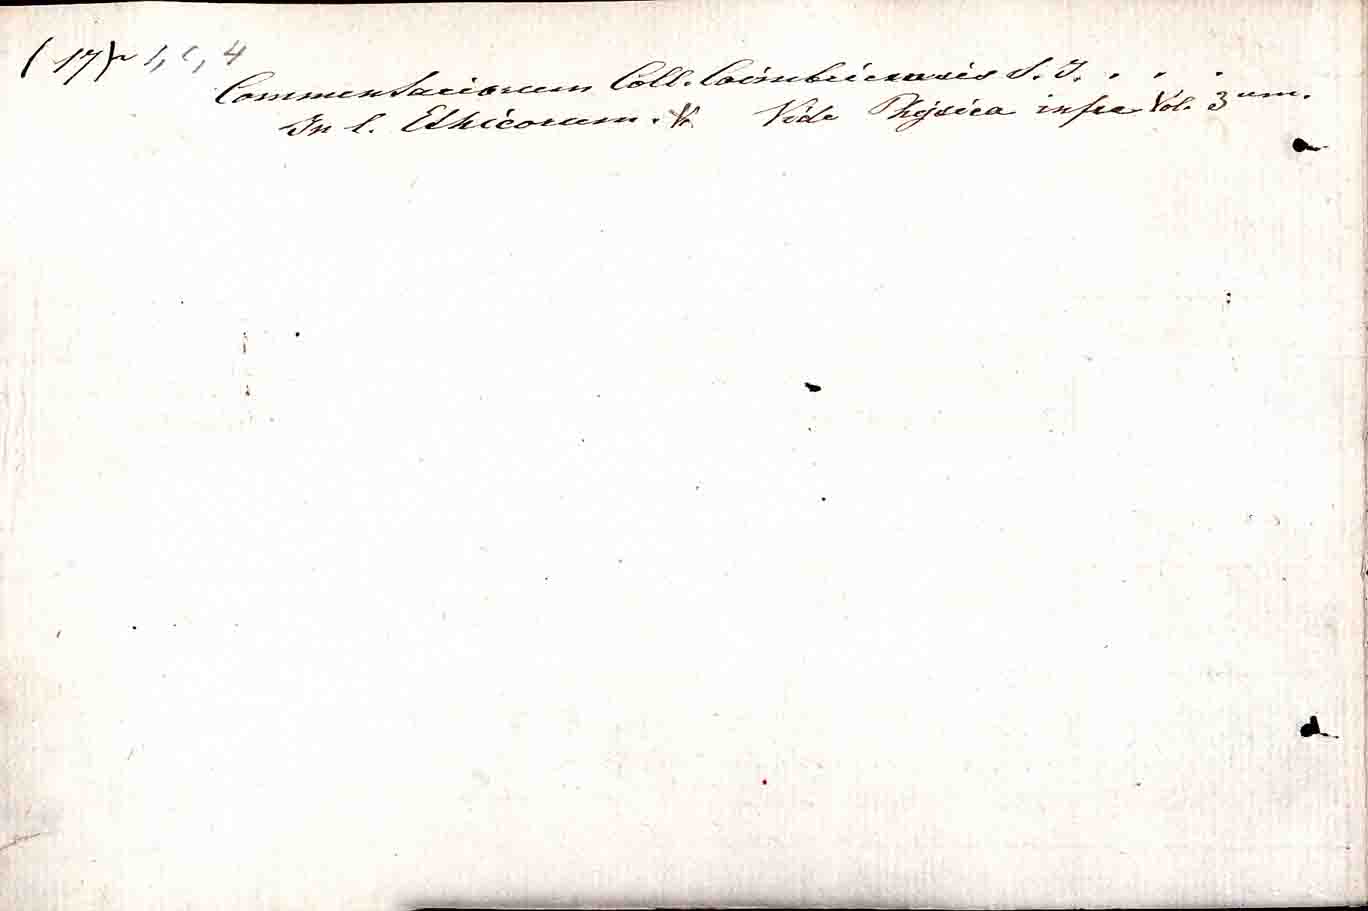 (17) 1, c, 4
Commentariorum Coll. Coimbricensis S. J. . . .
In l. Ethicorum. Vide Physica infra Vol. 3um.